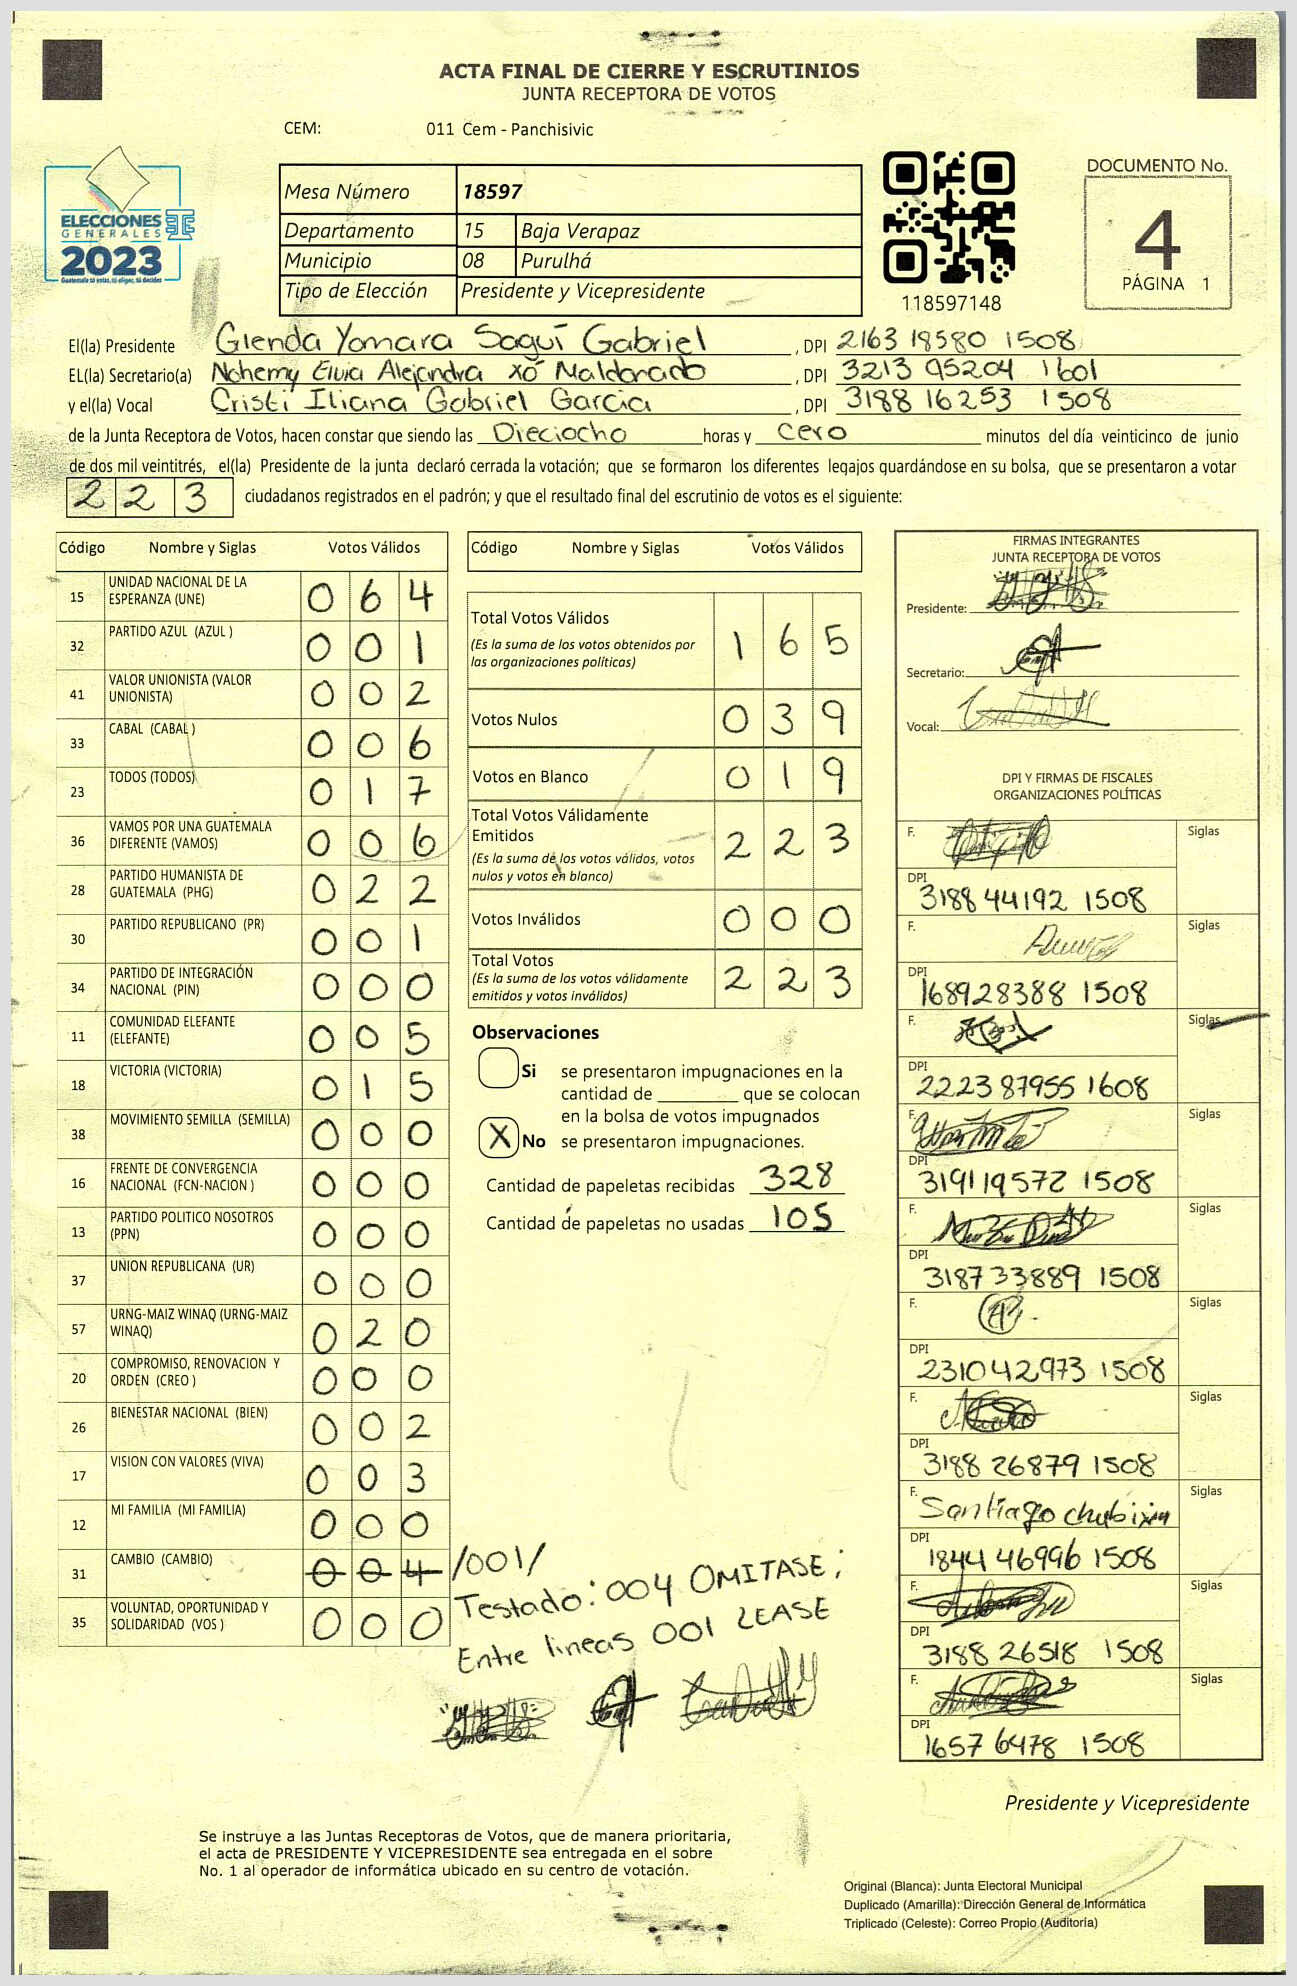 ACTA FINAL DE CIERRE Y ESCRUTINIOS
JUNTA RECEPTORA DE VOTOS
CEM: 011 Cem - Panchisivic
ELECCIONES
GENERALES
2023
Guatemala tú estas, tú eliges, tú decides
Mesa Número 18597
Departamento 15 Baja Verapaz
Municipio 08 Purulhá
Tipo de Elección Presidente y Vicepresidente
118597148
DOCUMENTO No.
4
PÁGINA 1
El(la) Presidente Glenda Yomara Saguí Gabriel , DPI 2163 18580 1508
EL(la) Secretario(a) Nohemy Elvia Alejandra xó Maldonado , DPI 3213 95204 1601
y el(la) Vocal Cristi Iliana Gabriel Garcia , DPI 3188 16253 1508
de la Junta Receptora de Votos, hacen constar que siendo las Dieciocho horas y cero minutos del día veinticinco de junio
de dos mil veintitrés, el(la) Presidente de la junta declaró cerrada la votación; que se formaron los diferentes legajos guardándose en su bolsa, que se presentaron a votar
223 ciudadanos registrados en el padrón; y que el resultado final del escrutinio de votos es el siguiente:
Código Nombre y Siglas Votos Válidos
15 UNIDAD NACIONAL DE LA ESPERANZA (UNE) 064
32 PARTIDO AZUL (AZUL ) 001
41 VALOR UNIONISTA (VALOR UNIONISTA) 002
33 CABAL (CABAL ) 006
23 TODOS (TODOS) 017
36 VAMOS POR UNA GUATEMALA DIFERENTE (VAMOS) 006
28 PARTIDO HUMANISTA DE GUATEMALA (PHG) 022
30 PARTIDO REPUBLICANO (PR) 001
34 PARTIDO DE INTEGRACIÓN NACIONAL (PIN) 000
11 COMUNIDAD ELEFANTE (ELEFANTE) 005
18 VICTORIA (VICTORIA) 015
38 MOVIMIENTO SEMILLA (SEMILLA) 000
16 FRENTE DE CONVERGENCIA NACIONAL (FCN-NACION ) 000
13 PARTIDO POLITICO NOSOTROS (PPN) 000
37 UNION REPUBLICANA (UR) 000
57 URNG-MAIZ WINAQ (URNG-MAIZ WINAQ) 020
20 COMPROMISO, RENOVACION Y ORDEN (CREO ) 000
26 BIENESTAR NACIONAL (BIEN) 002
17 VISION CON VALORES (VIVA) 003
12 MI FAMILIA (MI FAMILIA) 000
31 CAMBIO (CAMBIO) 004 /001/
35 VOLUNTAD, OPORTUNIDAD Y SOLIDARIDAD (VOS ) 000
Testado: 004 OMITASE;
Entre lineas 001 LEASE
Código Nombre y Siglas Votos Válidos
Total Votos Válidos 165
(Es la suma de los votos obtenidos por
las organizaciones políticas)
Votos Nulos 039
Votos en Blanco 019
Total Votos Válidamente
Emitidos 223
(Es la suma de los votos válidos, votos
nulos y votos en blanco)
Votos Inválidos 000
Total Votos 223
(Es la suma de los votos válidamente
emitidos y votos inválidos)
Observaciones
Si se presentaron impugnaciones en la
cantidad de ________ que se colocan
en la bolsa de votos impugnados
X No se presentaron impugnaciones.
Cantidad de papeletas recibidas 328
Cantidad de papeletas no usadas 105
FIRMAS INTEGRANTES
JUNTA RECEPTORA DE VOTOS
Presidente:
Secretario:
Vocal:
DPI Y FIRMAS DE FISCALES
ORGANIZACIONES POLÍTICAS
F. Siglas
DPI
3188 44192 1508
F. Siglas
DPI
168928388 1508
F. Siglas
DPI
2223 87955 1608
F. Siglas
DPI
319119572 1508
F. Siglas
DPI
3187 33889 1508
F. Siglas
DPI
231042973 1508
F. Siglas
DPI
3188 26879 1508
F. Santiago chubixim Siglas
DPI
1844 46996 1508
F. Siglas
DPI
3188 26518 1508
F. Siglas
DPI
1657 6478 1508
Presidente y Vicepresidente
Se instruye a las Juntas Receptoras de Votos, que de manera prioritaria,
el acta de PRESIDENTE Y VICEPRESIDENTE sea entregada en el sobre
No. 1 al operador de informática ubicado en su centro de votación.
Original (Blanca): Junta Electoral Municipal
Duplicado (Amarilla): Dirección General de Informática
Triplicado (Celeste): Correo Propio (Auditoría)